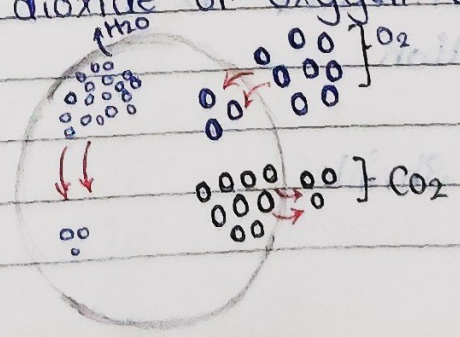 dioxide or oxygen
H2O
O2
CO2